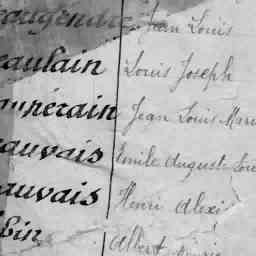 Jean Louis
aulain Louis Joseph
Jean Louis Mari
auvais Emile August Lou
auvais Henri Alexi
bin Albert